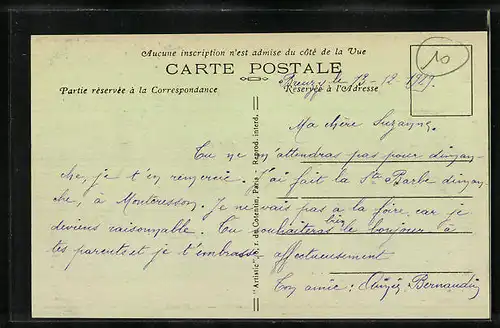 Aucune inscription n'est admise du côté de la Vue
CARTE POSTALE
Partie réservée à la Correspondance
Réservée à l'Adresse
le 13-12-1929.
10
Ma chère Suzanne.
Tu ne m'attendras pas pour diman-
che, je t'en remercie. J'ai fait la Ste Barbe diman-
che, à Montcresson. Je ne vais pas à la foire, car je
deviens raisonnable. Tu souhaiteras bien le bonjour à
tes parents et je t'embrasse affectueusement
Ton amie : Bernardin
"Artistic" r. du Cotentin, Paris - Reprod. interd.